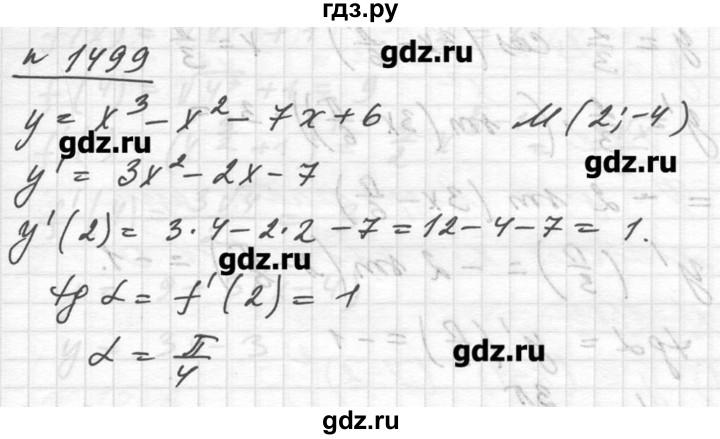 гдз.ру
n 1499
gdz.ru
y = x³ - x² - 7x + 6 M (2; -4)
gdz.ru
gdz.ru
y' = 3x² - 2x - 7
y'(2) = 3·4 - 2·2 - 7 = 12 - 4 - 7 = 1.
gdz.ru
tg α = f'(2) = 1
α = π/4
gdz.ru
gdz.ru